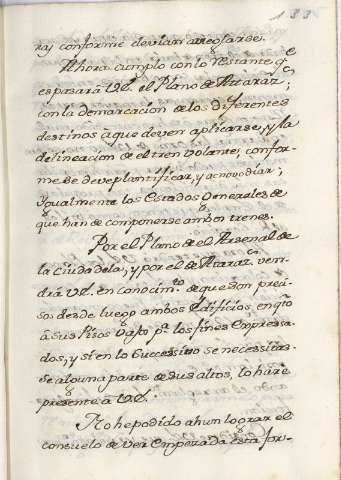 133
ras conforme devian arreglarse.
Ahora cumplo con lo restante, qe.
es pasar á VE. el Plano de Ataraz.s,
con la demarcacion de los diferentes
destinos á que deven aplicarse, y la
delineacion de el tren volante, confor-
me se deve plantificar, y acovodiar;
Igualmente los Estados Generales de
que han de componerse ambos trenes.
Por el Plano de el Arsenal de
la Ciudadela, y por el de Ataraz.s ven-
drá VE. en conocim.to de que son preci-
sos desde luego ambos Edificios, en qto.
á sus Pisos vajos pa. los fines empresa-
dos, y si en lo Succesivo se necesitas-
se alguna parte de sus altos, lo haré
presente á VE.
No he podido ahun lograr el
consuelo de ver empezada esta for-